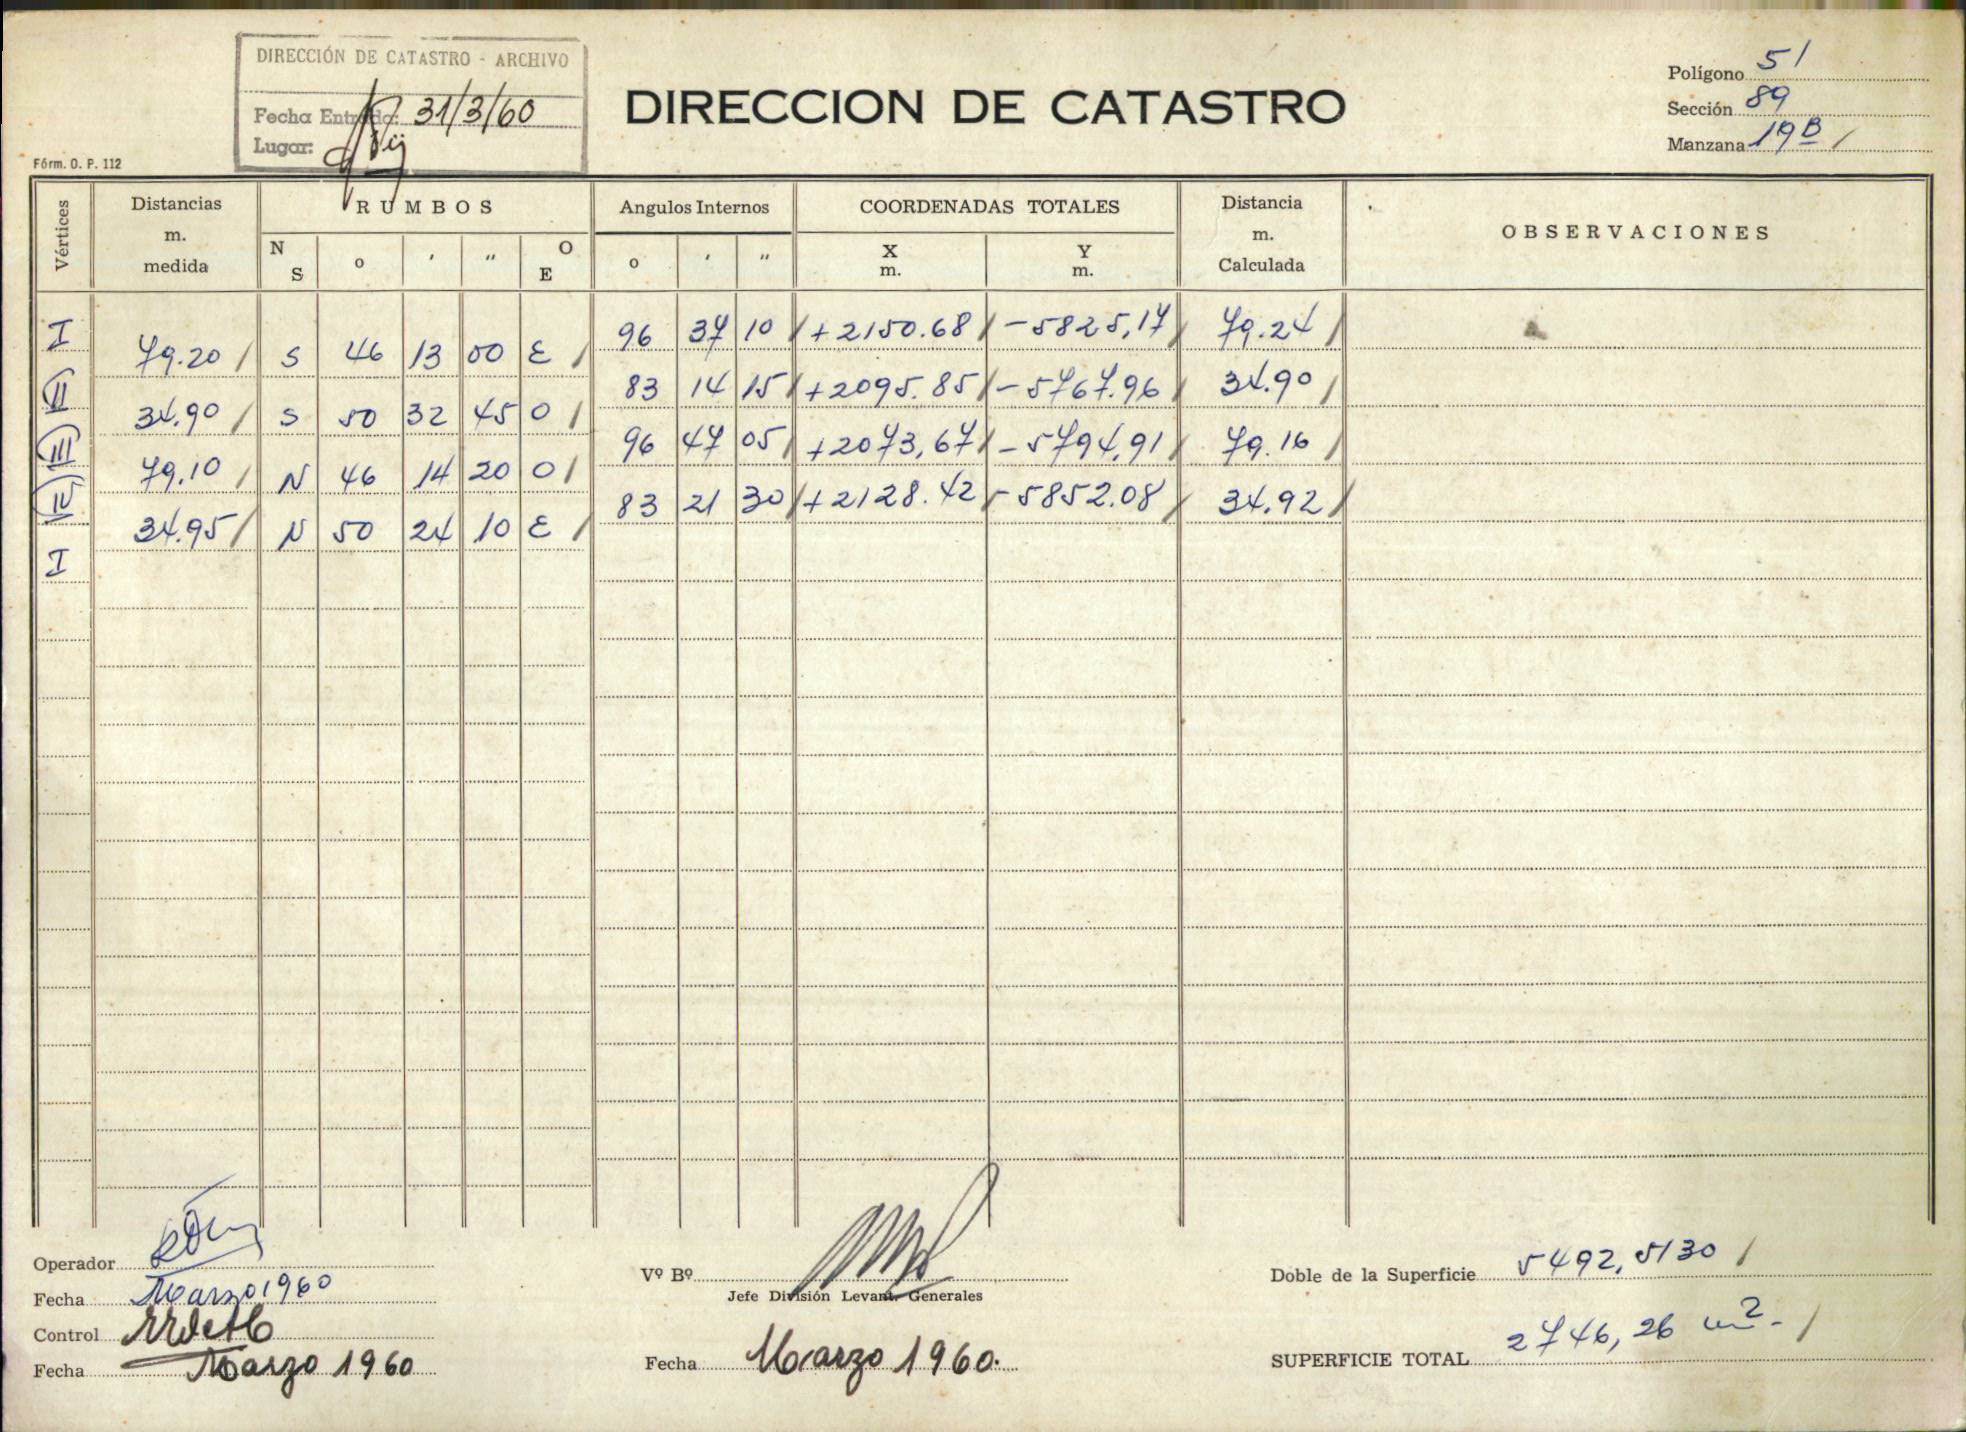 DIRECCIÓN DE CATASTRO - ARCHIVO
Fecha Entrada: 31/3/60
Lugar:
DIRECCION DE CATASTRO
Polígono 51
Sección 89
Manzana 19 B
Fórm. O. P. 112
Vértices
Distancias m. medida
RUMBOS
N S o ' " O E
Angulos Internos
o ' "
COORDENADAS TOTALES
X m. Y m.
Distancia m. Calculada
OBSERVACIONES
I 96 37 10 +2150.68 -5825,17 79.24
79.20 S 46 13 00 E
II 83 14 15 +2095.85 -5767.96 34.90
34.90 S 50 32 45 O
III 96 47 05 +2073,67 -5794,91 79.16
79,10 N 46 14 20 O
IV 83 21 30 +2128.42 -5852.08 34.92
34.95 N 50 24 10 E
I
Operador
Fecha Marzo 1960
Control
Fecha Marzo 1960
Vº Bº
Jefe División Levant. Generales
Fecha Marzo 1960.
Doble de la Superficie 5492,5130
SUPERFICIE TOTAL 2746,26 m2.